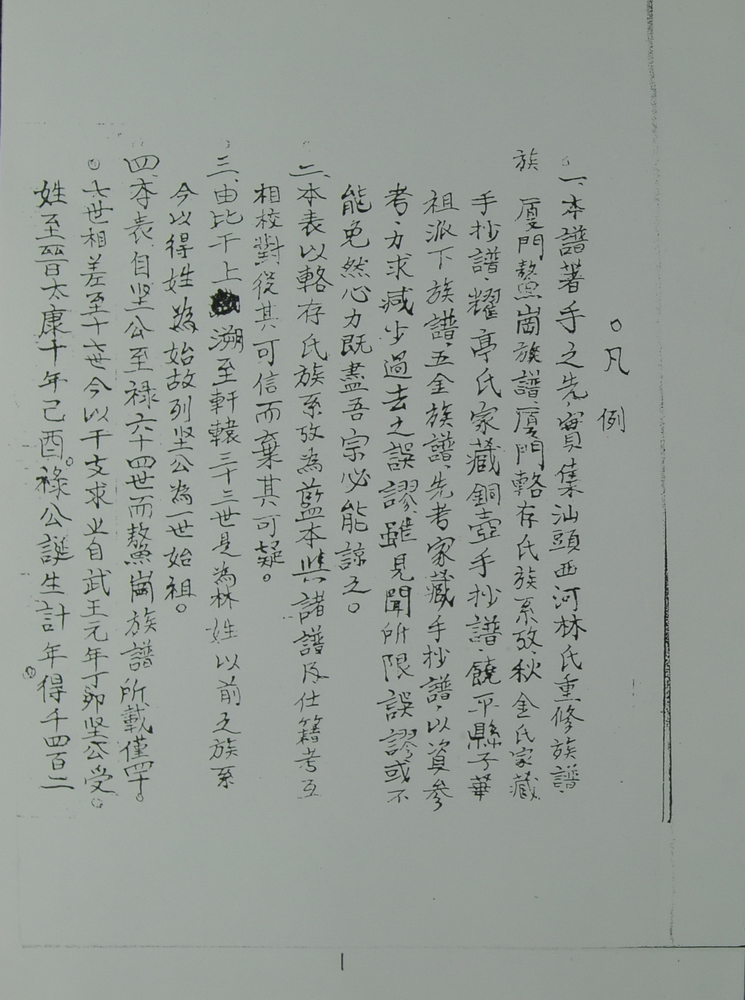 。凡例
一、本譜著手之先、實集汕頭西河林氏重修族譜、
族 厦門鰲崗族譜、厦門輅存氏族系攷、秋金氏家藏
手抄譜、耀亭氏家藏銅壺手抄譜、饒平縣子華
祖派下族譜、五全族譜、先考家藏手抄譜、以資參
考、力求減少過去之誤謬、雖見聞所限、誤謬或不
能免、然心力既盡、吾宗必能諒之。
二、本表以輅存氏族系攷為藍本、與諸譜及仕籍考互
相校對、從其可信而棄其可疑。
三、由比干上溯至軒轅三十三世、是為林姓以前之族系
今以得姓為始、故列坚公為一世始祖。
四、本表自坚公至禄六十四世、而鰲崗族譜所載僅四十。
。七世相差至十七世今以干支求之自武王元年丁卯坚公受。
姓至晉太康十年己酉。禄公誕生計年得千四百二
1